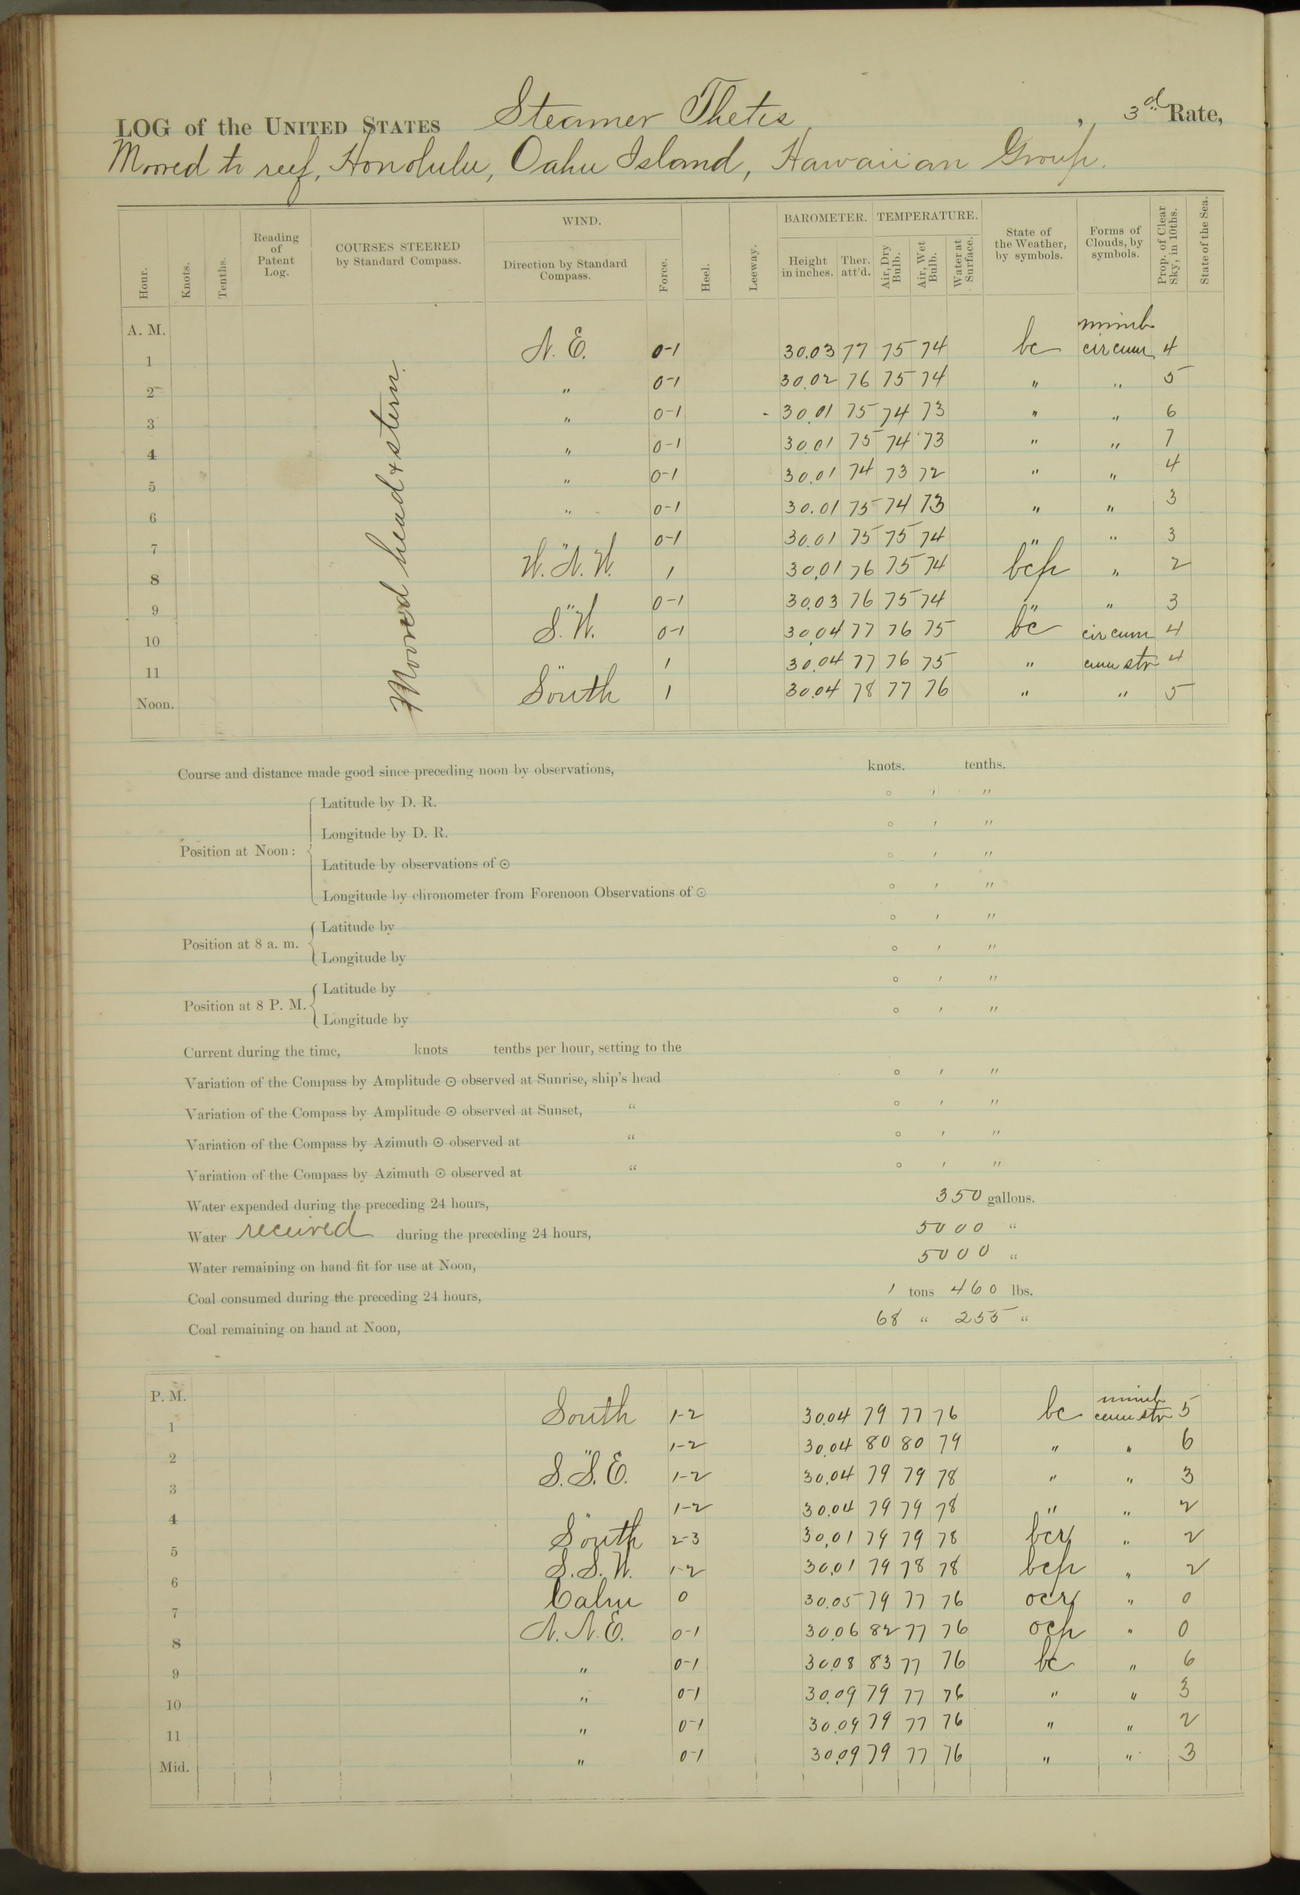 LOG of the UNITED STATES Steamer Thetis, 3d Rate,
Moored to reef, Honolulu, Oahu Island, Hawaiian Group.
Hour. Knots. Tenths. Reading of Patent Log. COURSES STEERED by Standard Compass. WIND. Direction by Standard Compass. Force. Heel. Leeway. BAROMETER. Height in inches. Ther. att'd. TEMPERATURE. Air, Dry Bulb. Air, Wet Bulb. Water at Surface. State of the Weather, by symbols. Forms of Clouds, by symbols. Prop. of Clear Sky, in 10ths. State of the Sea.
Moored head & stern.
A. M. nimb
1 N. E. 0-1 30.03 77 75 74 bc cir cum 4
2 " 0-1 30.02 76 75 74 " " 5
3 " 0-1 30.01 75 74 73 " " 6
4 " 0-1 30.01 75 74 73 " " 7
5 " 0-1 30.01 74 73 72 " " 4
6 " 0-1 30.01 75 74 73 " " 3
7 " 0-1 30.01 75 75 74 " " 3
8 W. N. W. 1 30.01 76 75 74 bcp " 2
9 " 0-1 30.03 76 75 74 " " 3
10 S. W. 0-1 30.04 77 76 75 bc cir cum 4
11 " 1 30.04 77 76 75 " cum str 4
Noon. South 1 30.04 78 77 76 " " 5
Course and distance made good since preceding noon by observations, knots. tenths.
Position at Noon:
Latitude by D. R. ° ′ ″
Longitude by D. R. ° ′ ″
Latitude by observations of ⊙ ° ′ ″
Longitude by chronometer from Forenoon Observations of ⊙ ° ′ ″
Position at 8 a. m.
Latitude by ° ′ ″
Longitude by ° ′ ″
Position at 8 P. M.
Latitude by ° ′ ″
Longitude by ° ′ ″
Current during the time, knots tenths per hour, setting to the
Variation of the Compass by Amplitude ⊙ observed at Sunrise, ship's head ° ′ ″
Variation of the Compass by Amplitude ⊙ observed at Sunset, " ° ′ ″
Variation of the Compass by Azimuth ⊙ observed at " ° ′ ″
Variation of the Compass by Azimuth ⊙ observed at " ° ′ ″
Water expended during the preceding 24 hours, 350 gallons.
Water received during the preceding 24 hours, 5000 "
Water remaining on hand fit for use at Noon, 5000 "
Coal consumed during the preceding 24 hours, 1 tons 460 lbs.
Coal remaining on hand at Noon, 68 " 255 "
P. M. nimb
1 South 1-2 30.04 79 77 76 bc cum str 5
2 " 1-2 30.04 80 80 79 " " 6
3 S. S. E. 1-2 30.04 79 79 78 " " 3
4 " 1-2 30.04 79 79 78 " " 2
5 South 2-3 30.01 79 79 78 bcr " 2
6 S. S. W. 1-2 30.01 79 78 78 bcp " 2
7 Calm 0 30.05 79 77 76 ocr " 0
8 N. N. E. 0-1 30.06 82 77 76 ocp " 0
9 " 0-1 30.08 83 77 76 bc " 6
10 " 0-1 30.09 79 77 76 " " 3
11 " 0-1 30.09 79 77 76 " " 2
Mid. " 0-1 30.09 79 77 76 " " 3